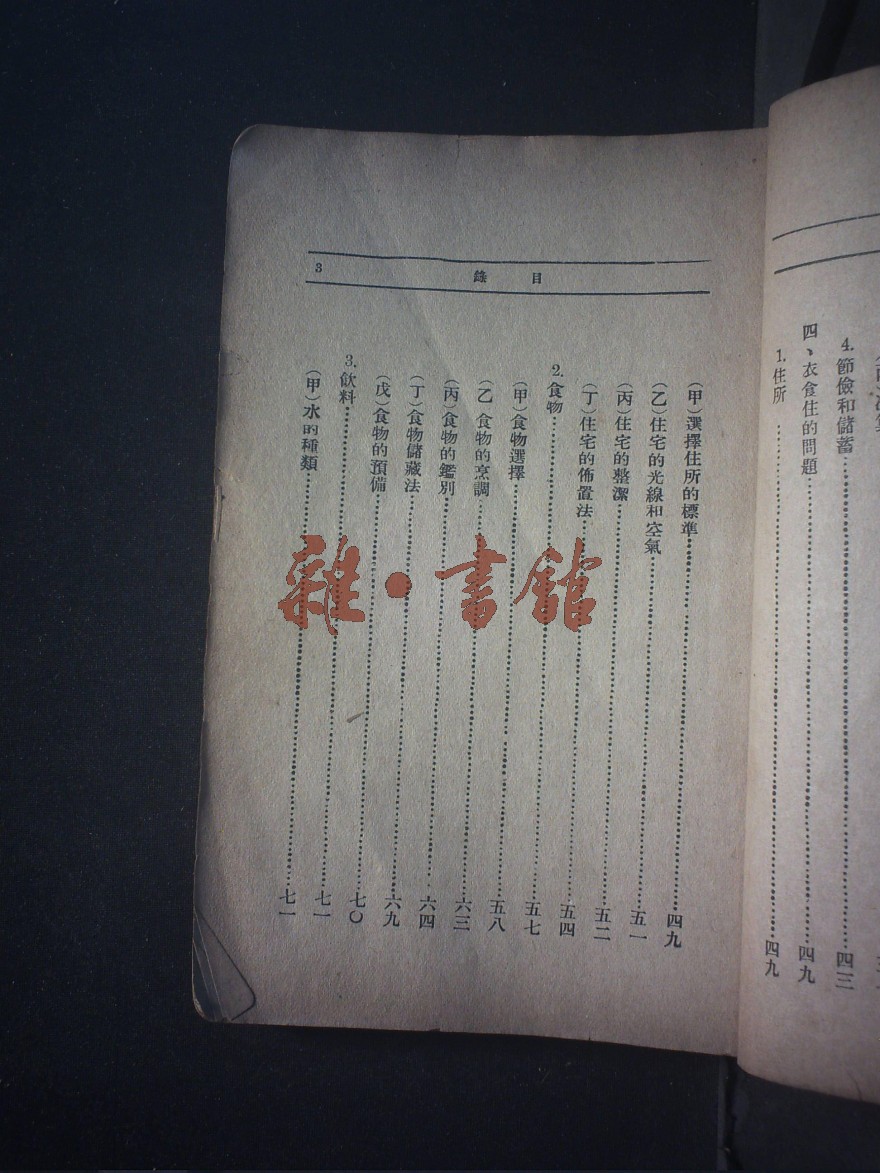 4. 節儉和儲蓄……四三
四、衣食住的問題……四九
1. 住所……四九
目錄
3
（甲）選擇住所的標準……四九
（乙）住宅的光線和空氣……五一
（丙）住宅的整潔……五二
（丁）住宅的佈置法……五四
2. 食物……五七
（甲）食物選擇……五八
（乙）食物的烹調……六三
（丙）食物的鑑別……六四
（丁）食物儲藏法……六九
（戊）食物的預備……七〇
3. 飲料……七一
（甲）水的種類……七一
雜·書館